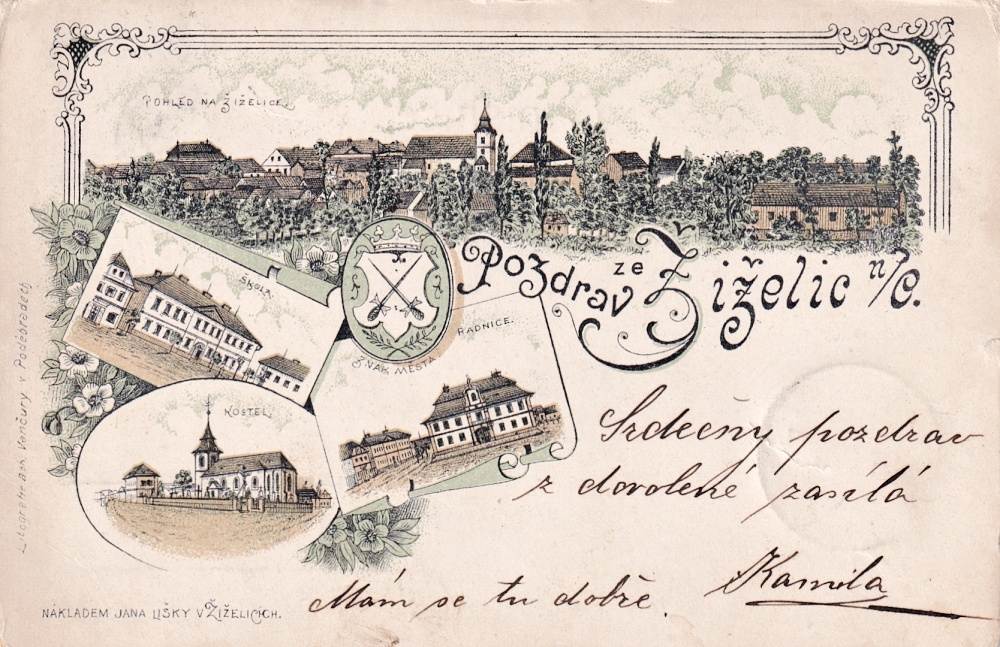 POHLED NA ŽIŽELICE.
Pozdrav ze Žiželic n/C.
ŠKOLA.
ZNAK MĚSTA
RADNICE.
KOSTEL.
Srdečný pozdrav
z dovolené zasílá
Kamila
Mám se tu dobře.
NÁKLADEM JANA LIŠKY V ŽIŽELICÍCH.
v Poděbradech